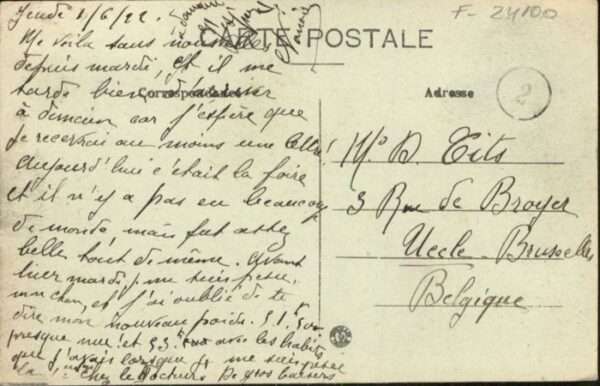 F-24100
CARTE POSTALE
Correspondance
Adresse
2
Jeudi 1/6/22.
Me voilà sans nouvelles
depuis mardi, et il me
tarde bien d'arriver
à demain car j'espère que
je recevrai au moins une lettre!
Aujourd'hui c'était la foire
et il n'y a pas eu beaucoup
de monde mais fut assez
belle tout de même. Avant
hier mardi je me suis pesée,
mon cher, et j'ai oublié de te
dire mon nouveau poids. 51k500
presque nue et 53 avec les habits
que j'avais lorsque je me suis pesée
chez le docteur. De gros baisers
Mr D. Tits
3 Rue de Broyer
Uccle-Bruxelles
Belgique